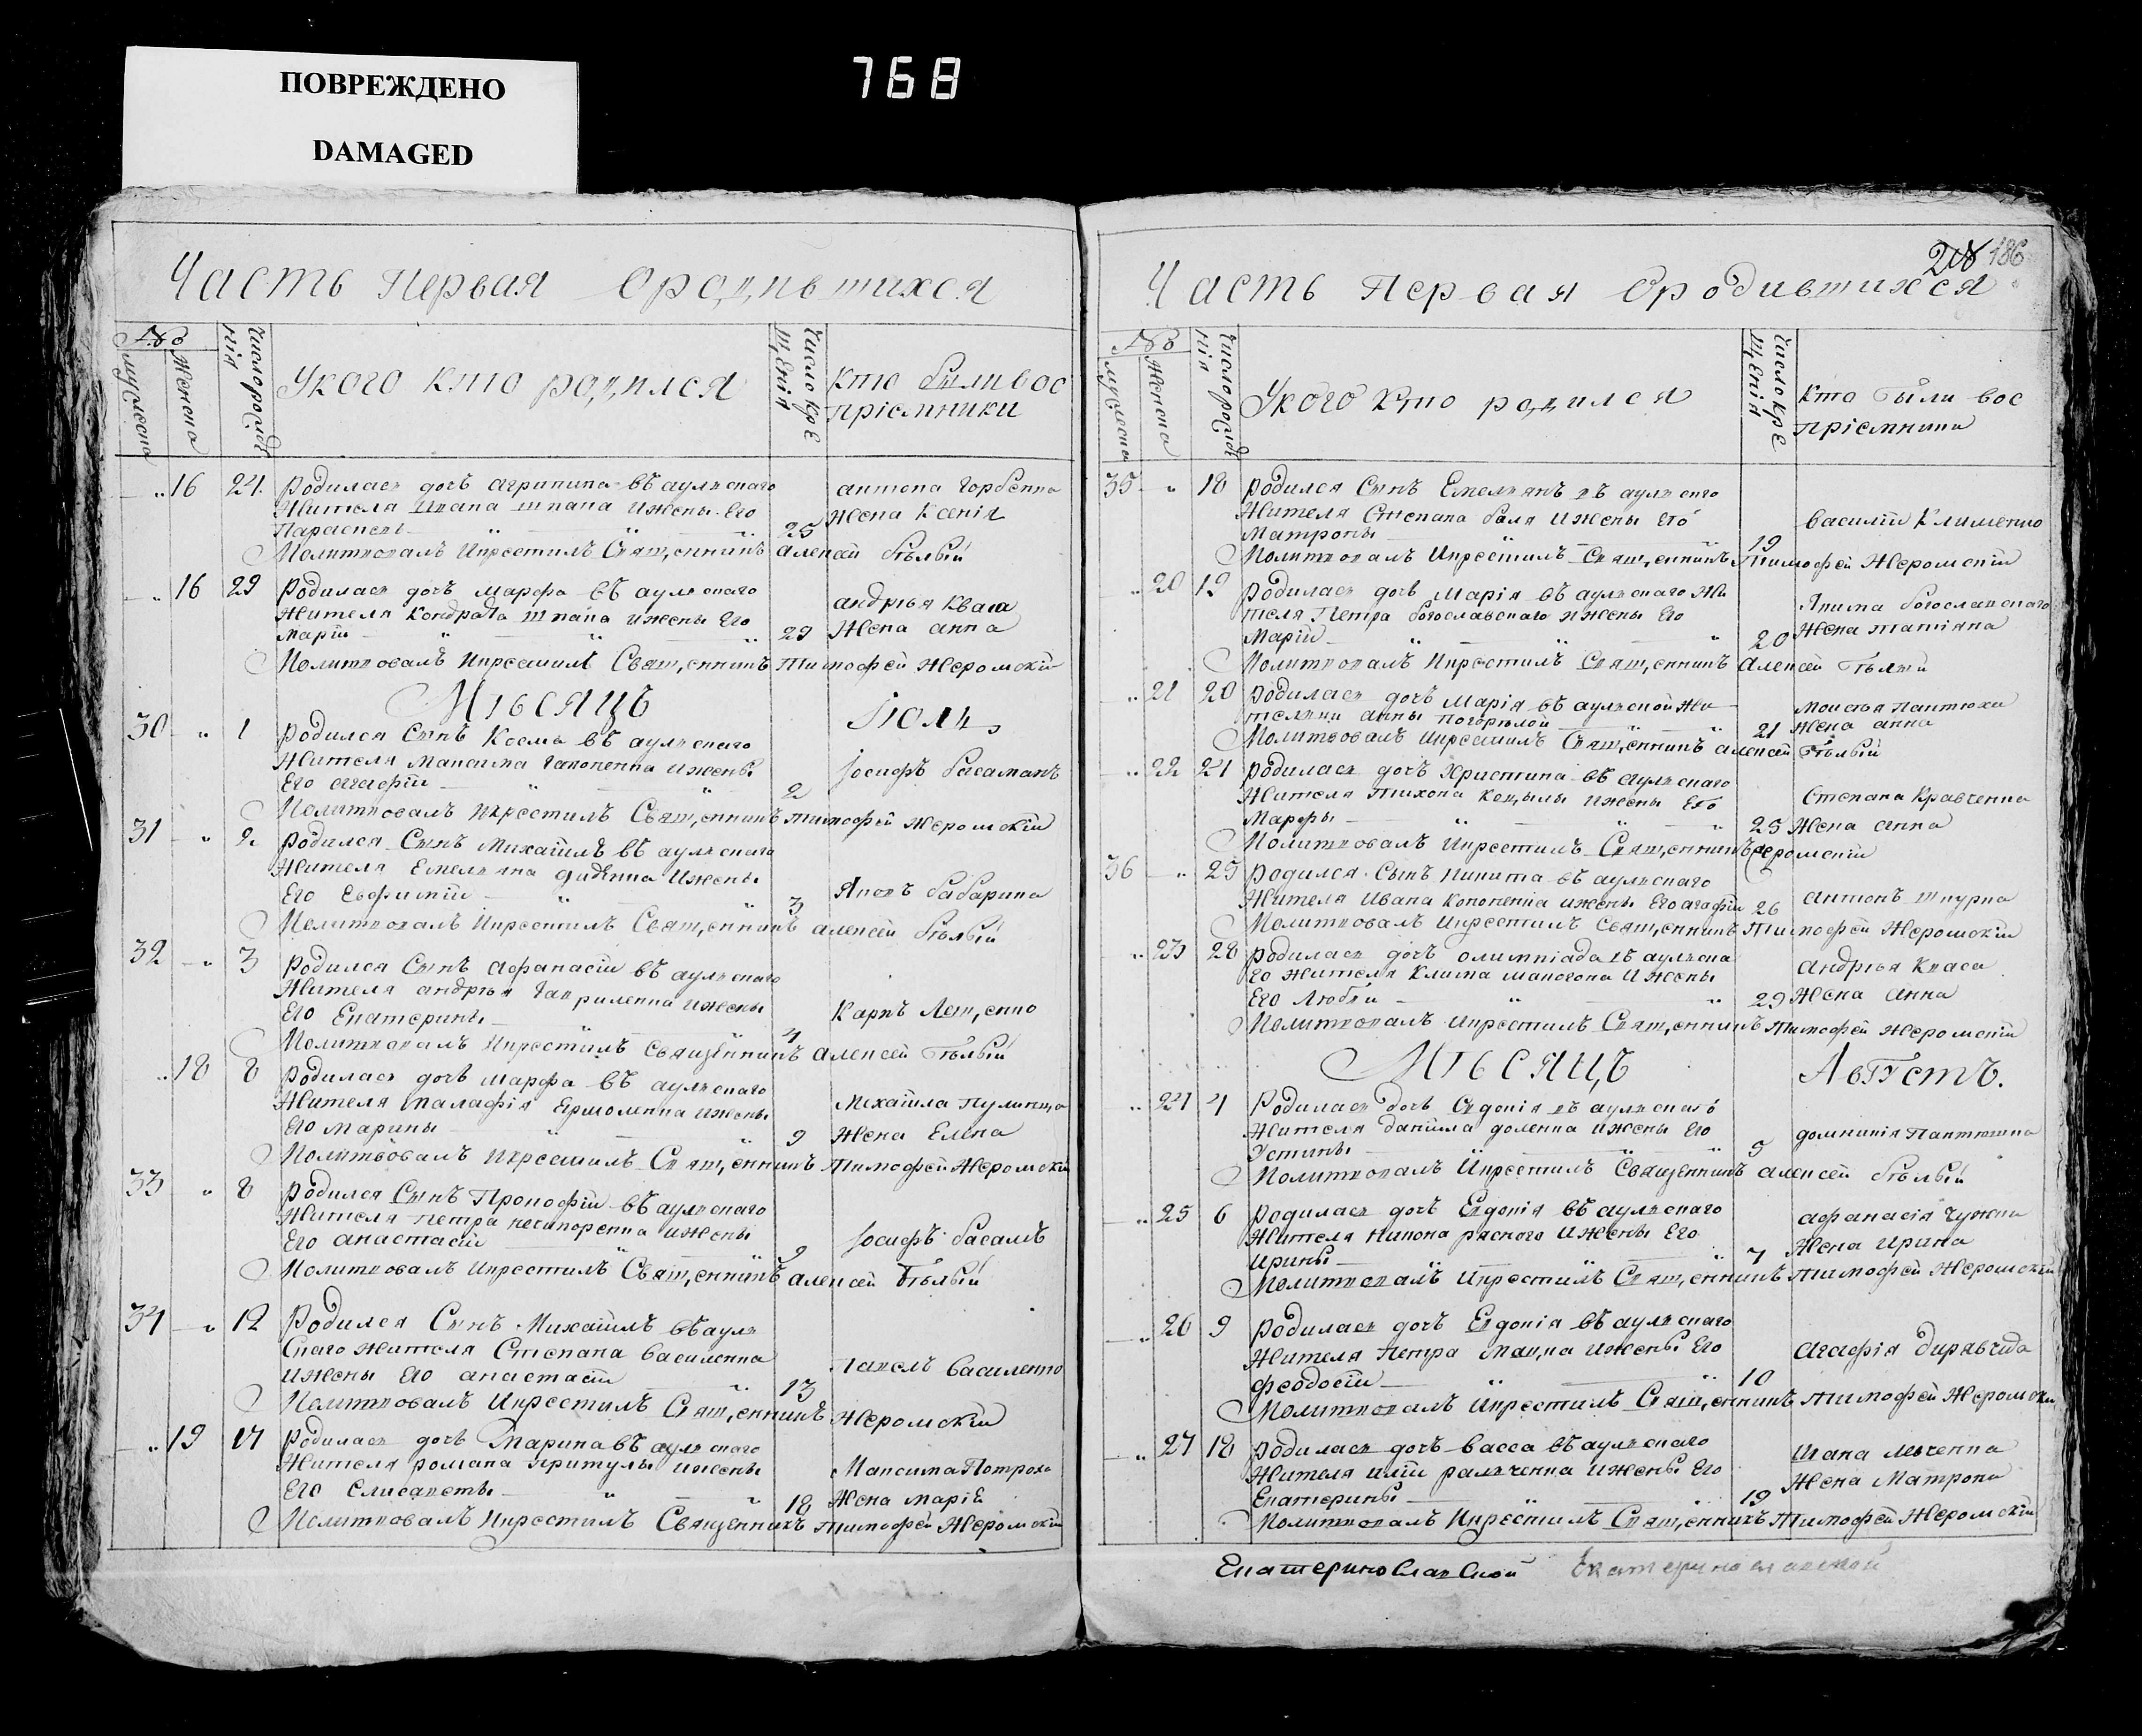 ПОВРЕЖДЕНО
DAMAGED
768
Часть Первая Ородившихся
№
мужеска
Женска
Число рожде
нія
Укого кто родился
Число Кре
щенія
Кто были вос
пріемники
„ 16 24. родилась дочъ агрипина въ аульскаго
Жителя Ивана шпака ижены Его
Параскевы 25
антона Горбенка
Жена Ксенія
Молитвовалъ Икрестилъ Священникъ алексей Бѣлый
„ 16 29 Родилась дочъ марфа въ аульскаго
Жителя Кондрата шпака ижены Его
маріи 29
андрѣя Кваша
Жена анна
Молитвовалъ Икрестилъ Священникъ Тимофей Жеромскій
Мѣсяцъ Іюль
30 „ 1 родился Сынъ Косма въ аульскаго
Жителя Максима Гапоненка ижены
Его агафіи 2
Іосифъ басаманъ
Молитвовалъ Икрестилъ Священникъ тимофей Жеромскій
31 „ 2 родился Сынъ Михаилъ въ аульскаго
Жителя Емельяна диденка Ижены
Его Евфиміи 3
Яковъ бабарика
Молитвовалъ Икрестилъ Священникъ алексей бѣлый
32 „ 3 родился Сынъ афанасій въ аульскаго
Жителя андрѣя Гавриленка ижены
Его Екатерины 4
Карпъ Лещенко
Молитвовалъ Икрестилъ Священникъ алексей Бѣлый
„ 18 8 родилась дочъ марфа въ аульскаго
Жителя малафія Ермоленка ижены
Его марины 9
михаила
Жена Елена
Молитвовалъ Икрестилъ Священникъ Тимофей Жеромскій
33 „ 8 родился Сынъ Прокофій въ аульскаго
Жителя петра нечипоренка ижены
Его анастасіи 9
Іосифъ басамъ
Молитвовалъ Икрестилъ Священникъ алексей Бѣлый
34 „ 12 Родился Сынъ Михаилъ въ ауль
Скаго жителя Степана василенка
ижены Его анастасіи 13
павелъ василенко
Молитвовалъ Икрестилъ Священникъ Жеромскій
„ 19 17 родилась дочъ марина въ аульскаго
Жителя романа притулы ижены
Его Елисаветы 18
Максима Потроха
Жена маріе
Молитвовалъ Икрестилъ Священникъ Тимофей Жеромскій
218 186
Часть Первая Ородившихся
№
мужеска
Женска
Число рожде
нія
Укого кто родился
Число Кре
щенія
Кто были вос
пріемники
35 „ 18 родился Сынъ Емельянъ въ аульскаго
Жителя Степана баля ижены Его
Матроны 19
василій Клименко
Молитвовалъ Икрестилъ Священникъ Тимофей Жеромскій
„ 20 19 родилась дочъ марія въ аульскаго Жи
теля Петра богославскаго ижены Его
Маріи 20
Якима богославскаго
Жена татіяна
Молитвовалъ Икрестилъ Священникъ алексей Бѣлый
„ 21 20 родилась дочъ марія въ аульской Жи
тельки анны погорѣлой 21
моисѣя Пантюхи
Жена анна
Молитвовалъ Икрестилъ Священникъ алексей Бѣлый
„ 22 21 родилась дочъ Христина въ аульскаго
Жителя тихона Коцылы ижены Его
Марфы 25
Степана Кравченка
Жена анна
Молитвовалъ Икрестилъ Священникъ Жеромскій
36 „ 25 родился Сынъ Никита въ аульскаго
Жителя Ивана Кононенка ижены Его агафіи 26
антонъ шкурка
Молитвовалъ Икрестилъ Священникъ Тимофей Жеромскій
„ 23 28 родилась дочъ олимпіада въ аульска
го жителя Клима маногона Ижены
Его Любви 29
андрѣя Кваса
Жена анна
Молитвовалъ Икрестилъ Священникъ Тимофей Жеромскій
Мѣсяцъ Августъ.
„ 24 4 Родилась дочъ Евдокія въ аульскаго
Жителя даніила доленка ижены Его
Устины 5
домникія Пантюшка
Молитвовалъ Икрестилъ Священникъ алексей бѣлый
„ 25 6 родилась дочъ Евдокія въ аульскаго
Жителя никона раского Ижены Его
Ирины 7
афанасія чужка
Жена Ирина
Молитвовалъ Икрестилъ Священникъ Тимофей Жеромскій
„ 26 9 родилась дочъ Евдокія въ аульскаго
Жителя Петра ижены Его
Феодосіи 10
агафія дирявчида
Молитвовалъ Икрестилъ Священникъ Тимофей Жеромскій
„ 27 18 родилась дочъ васса въ аульскаго
Жителя иліи ральченка ижены Его
Екатерины 19
Ивана левченка
Жена Матрона
Молитвовалъ Икрестилъ Священникъ Тимофей Жеромскій
ЕкатериноСлавской Екатеринославской